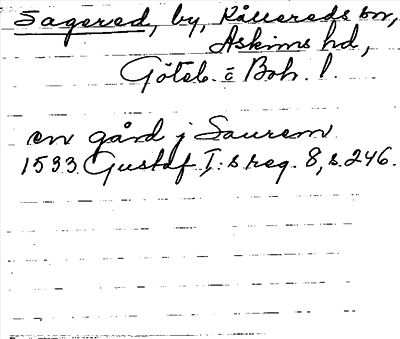 Sagered, by, Kållereds sn,
Askims hd,
Göteb. o Boh. l.
en gård j Saurem
1533 Gustaf I:s reg. 8, s. 246.